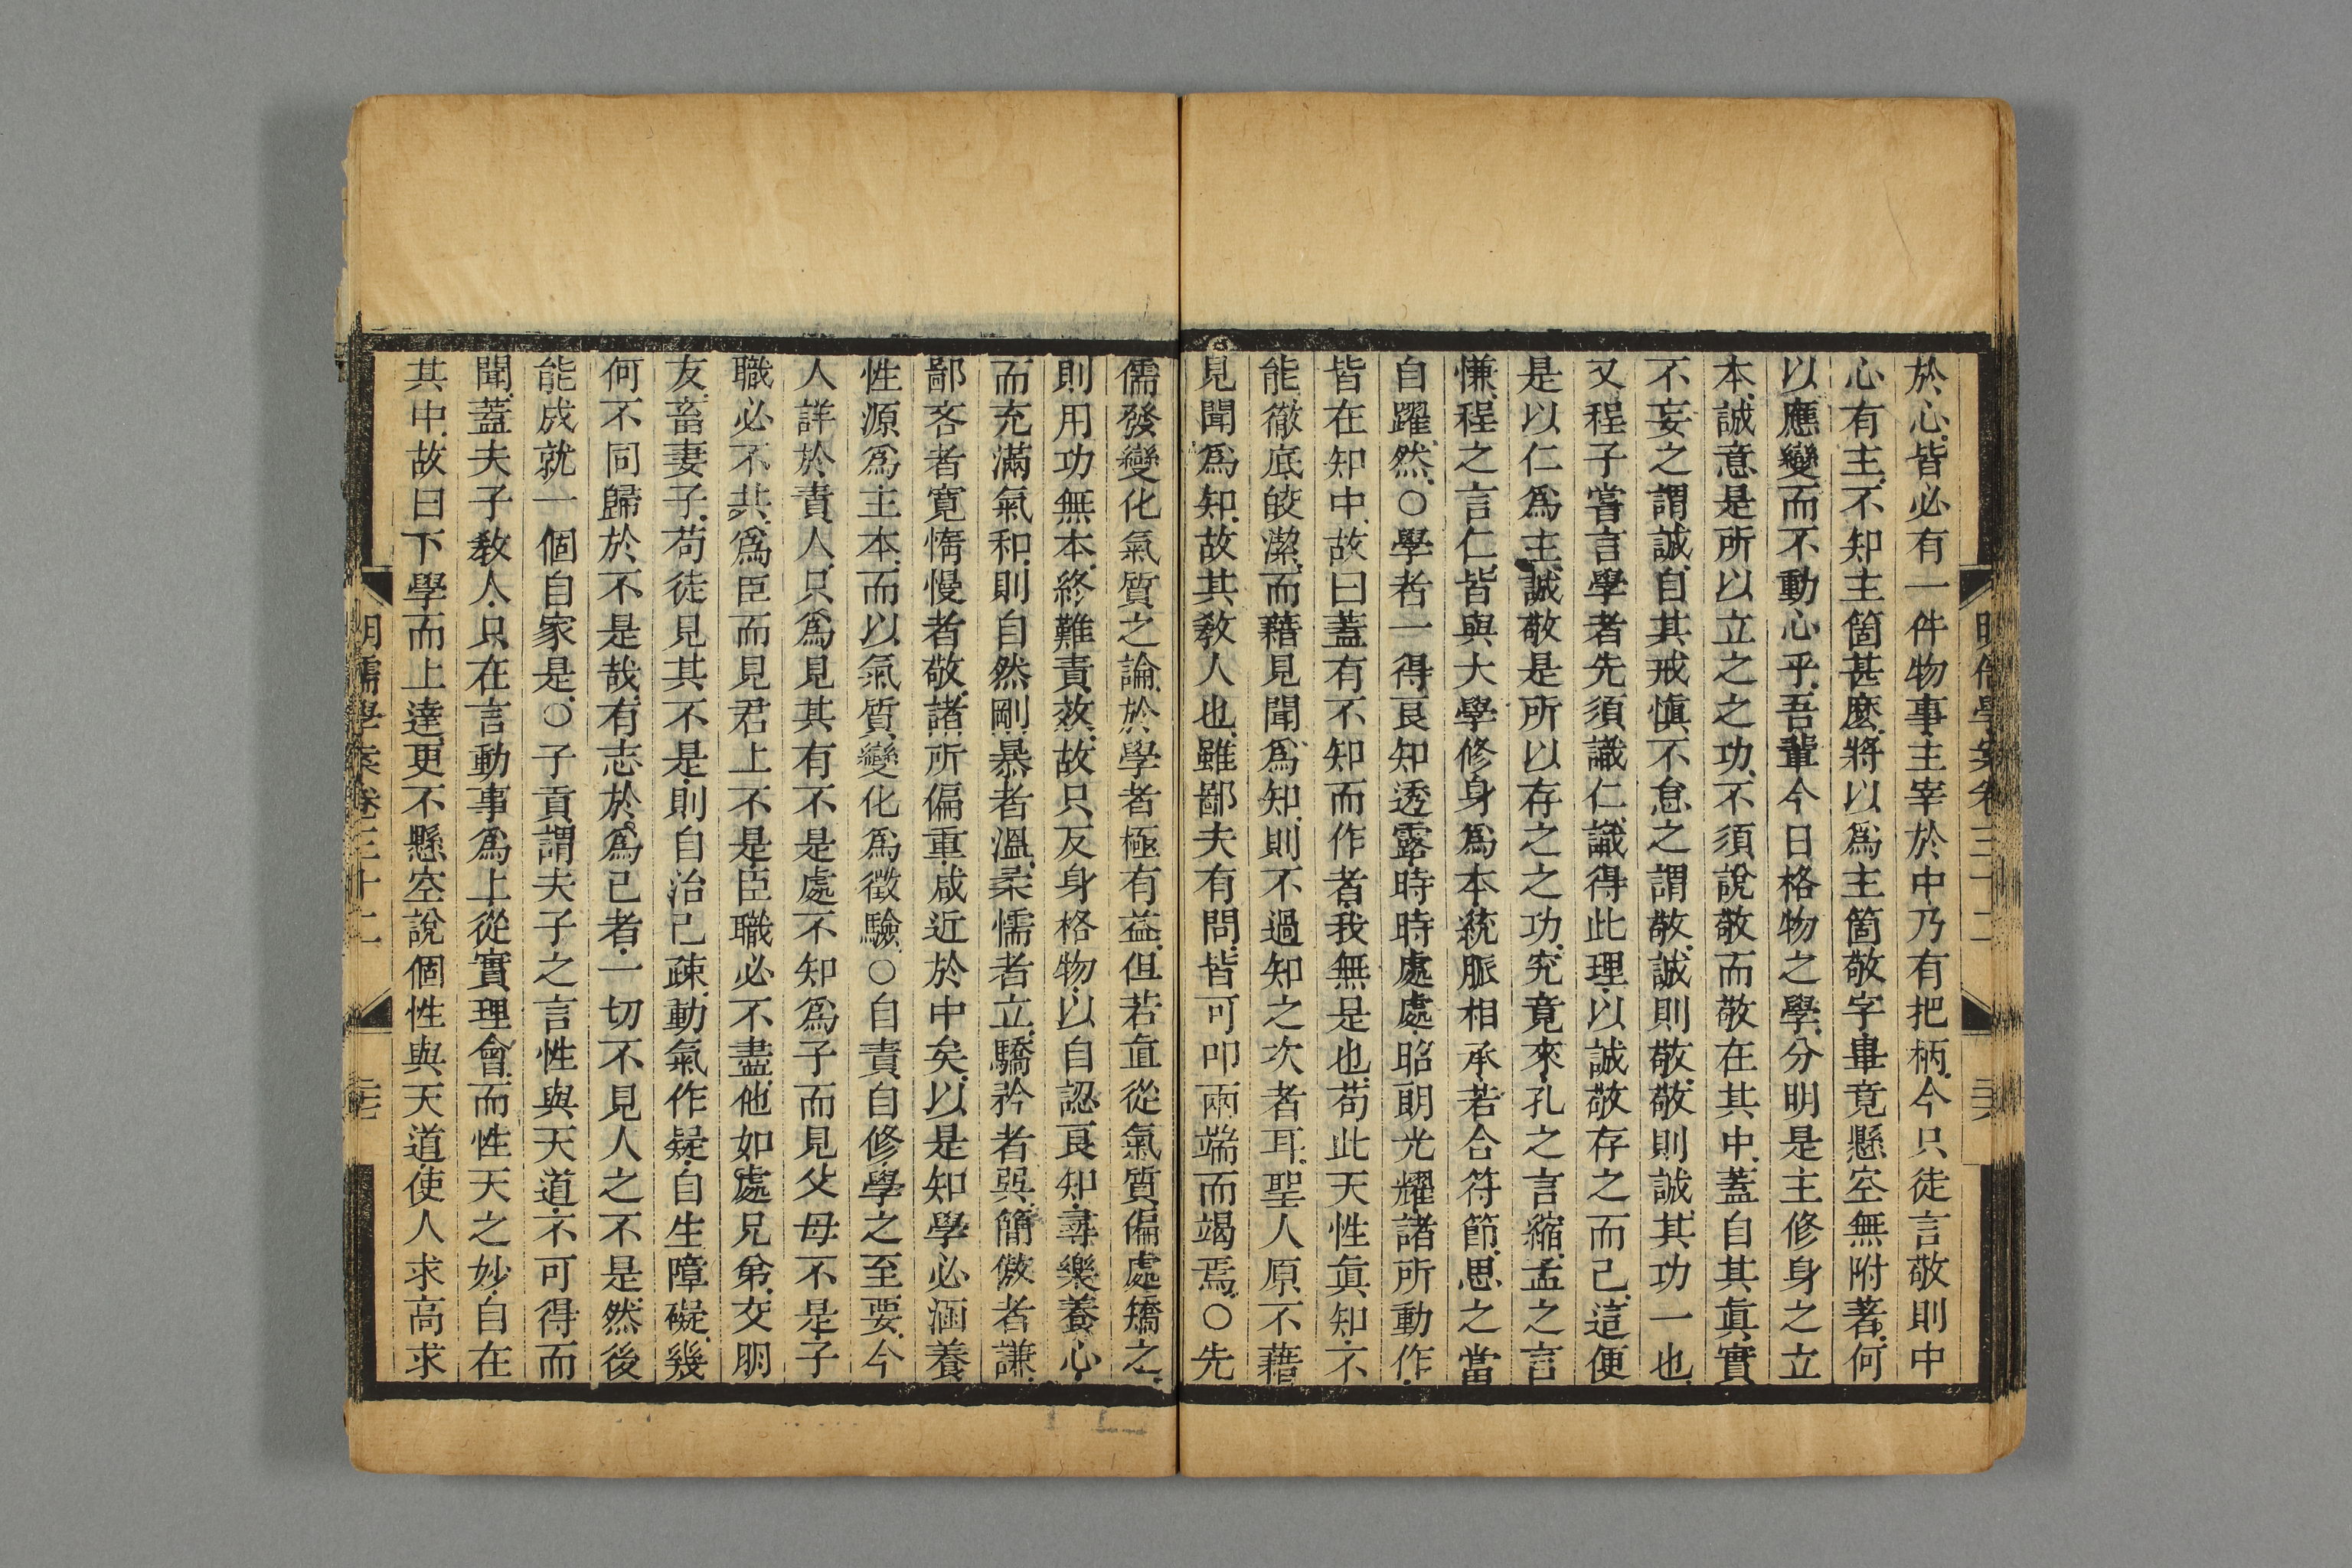 於心皆必有一件物事主宰於中乃有把柄今只徒言敬則中
心有主不知主箇甚麼將以爲主箇敬字畢竟懸空無附著何
以應變而不動心乎吾輩今日格物之學分明是主修身之立
本誠意是所以立之之功不須說敬而敬在其中蓋自其眞實
不妄之謂誠自其戒愼不怠之謂敬誠則敬敬則誠其功一也
又程子嘗言學者先須識仁識得此理以誠敬存之而已這便
是以仁爲主誠敬是所以存之之功究竟來孔之言縮孟之言
慊程之言仁皆與大學修身爲本統脈相承若合符節思之當
自躍然○學者一得良知透露時時處處昭朗光耀諸所動作
皆在知中故曰蓋有不知而作者我無是也苟此天性眞知不
能徹底皎潔而藉見聞爲知則不過知之次者耳聖人原不藉
見聞爲知故其敎人也雖鄙夫有問皆可叩兩端而竭焉○先
儒發變化氣質之論於學者極有益但若直從氣質偏處矯之
則用功無本終難責效故只反身格物以自認良知尋樂養心
而充滿氣和則自然剛暴者溫柔懦者立驕矜者巽簡傲者謙
鄙吝者寬惰慢者敬諸所偏重咸近於中矣以是知學必涵養
性源爲主本而以氣質變化爲徵驗○自責自修學之至要今
人詳於責人只爲見其有不是處不知爲子而見父母不是子
職必不共爲臣而見君上不是臣職必不盡他如處兄弟交朋
友畜妻子苟徒見其不是則自治已疎動氣作疑自生障礙幾
何不同歸於不是哉有志於爲己者一切不見人之不是然後
能成就一個自家是○子貢謂夫子之言性與天道不可得而
聞蓋夫子敎人只在言動事爲上從實理會而性天之妙自在
其中故曰下學而上達更不懸空說個性與天道使人求高求
明儒學案卷三十二